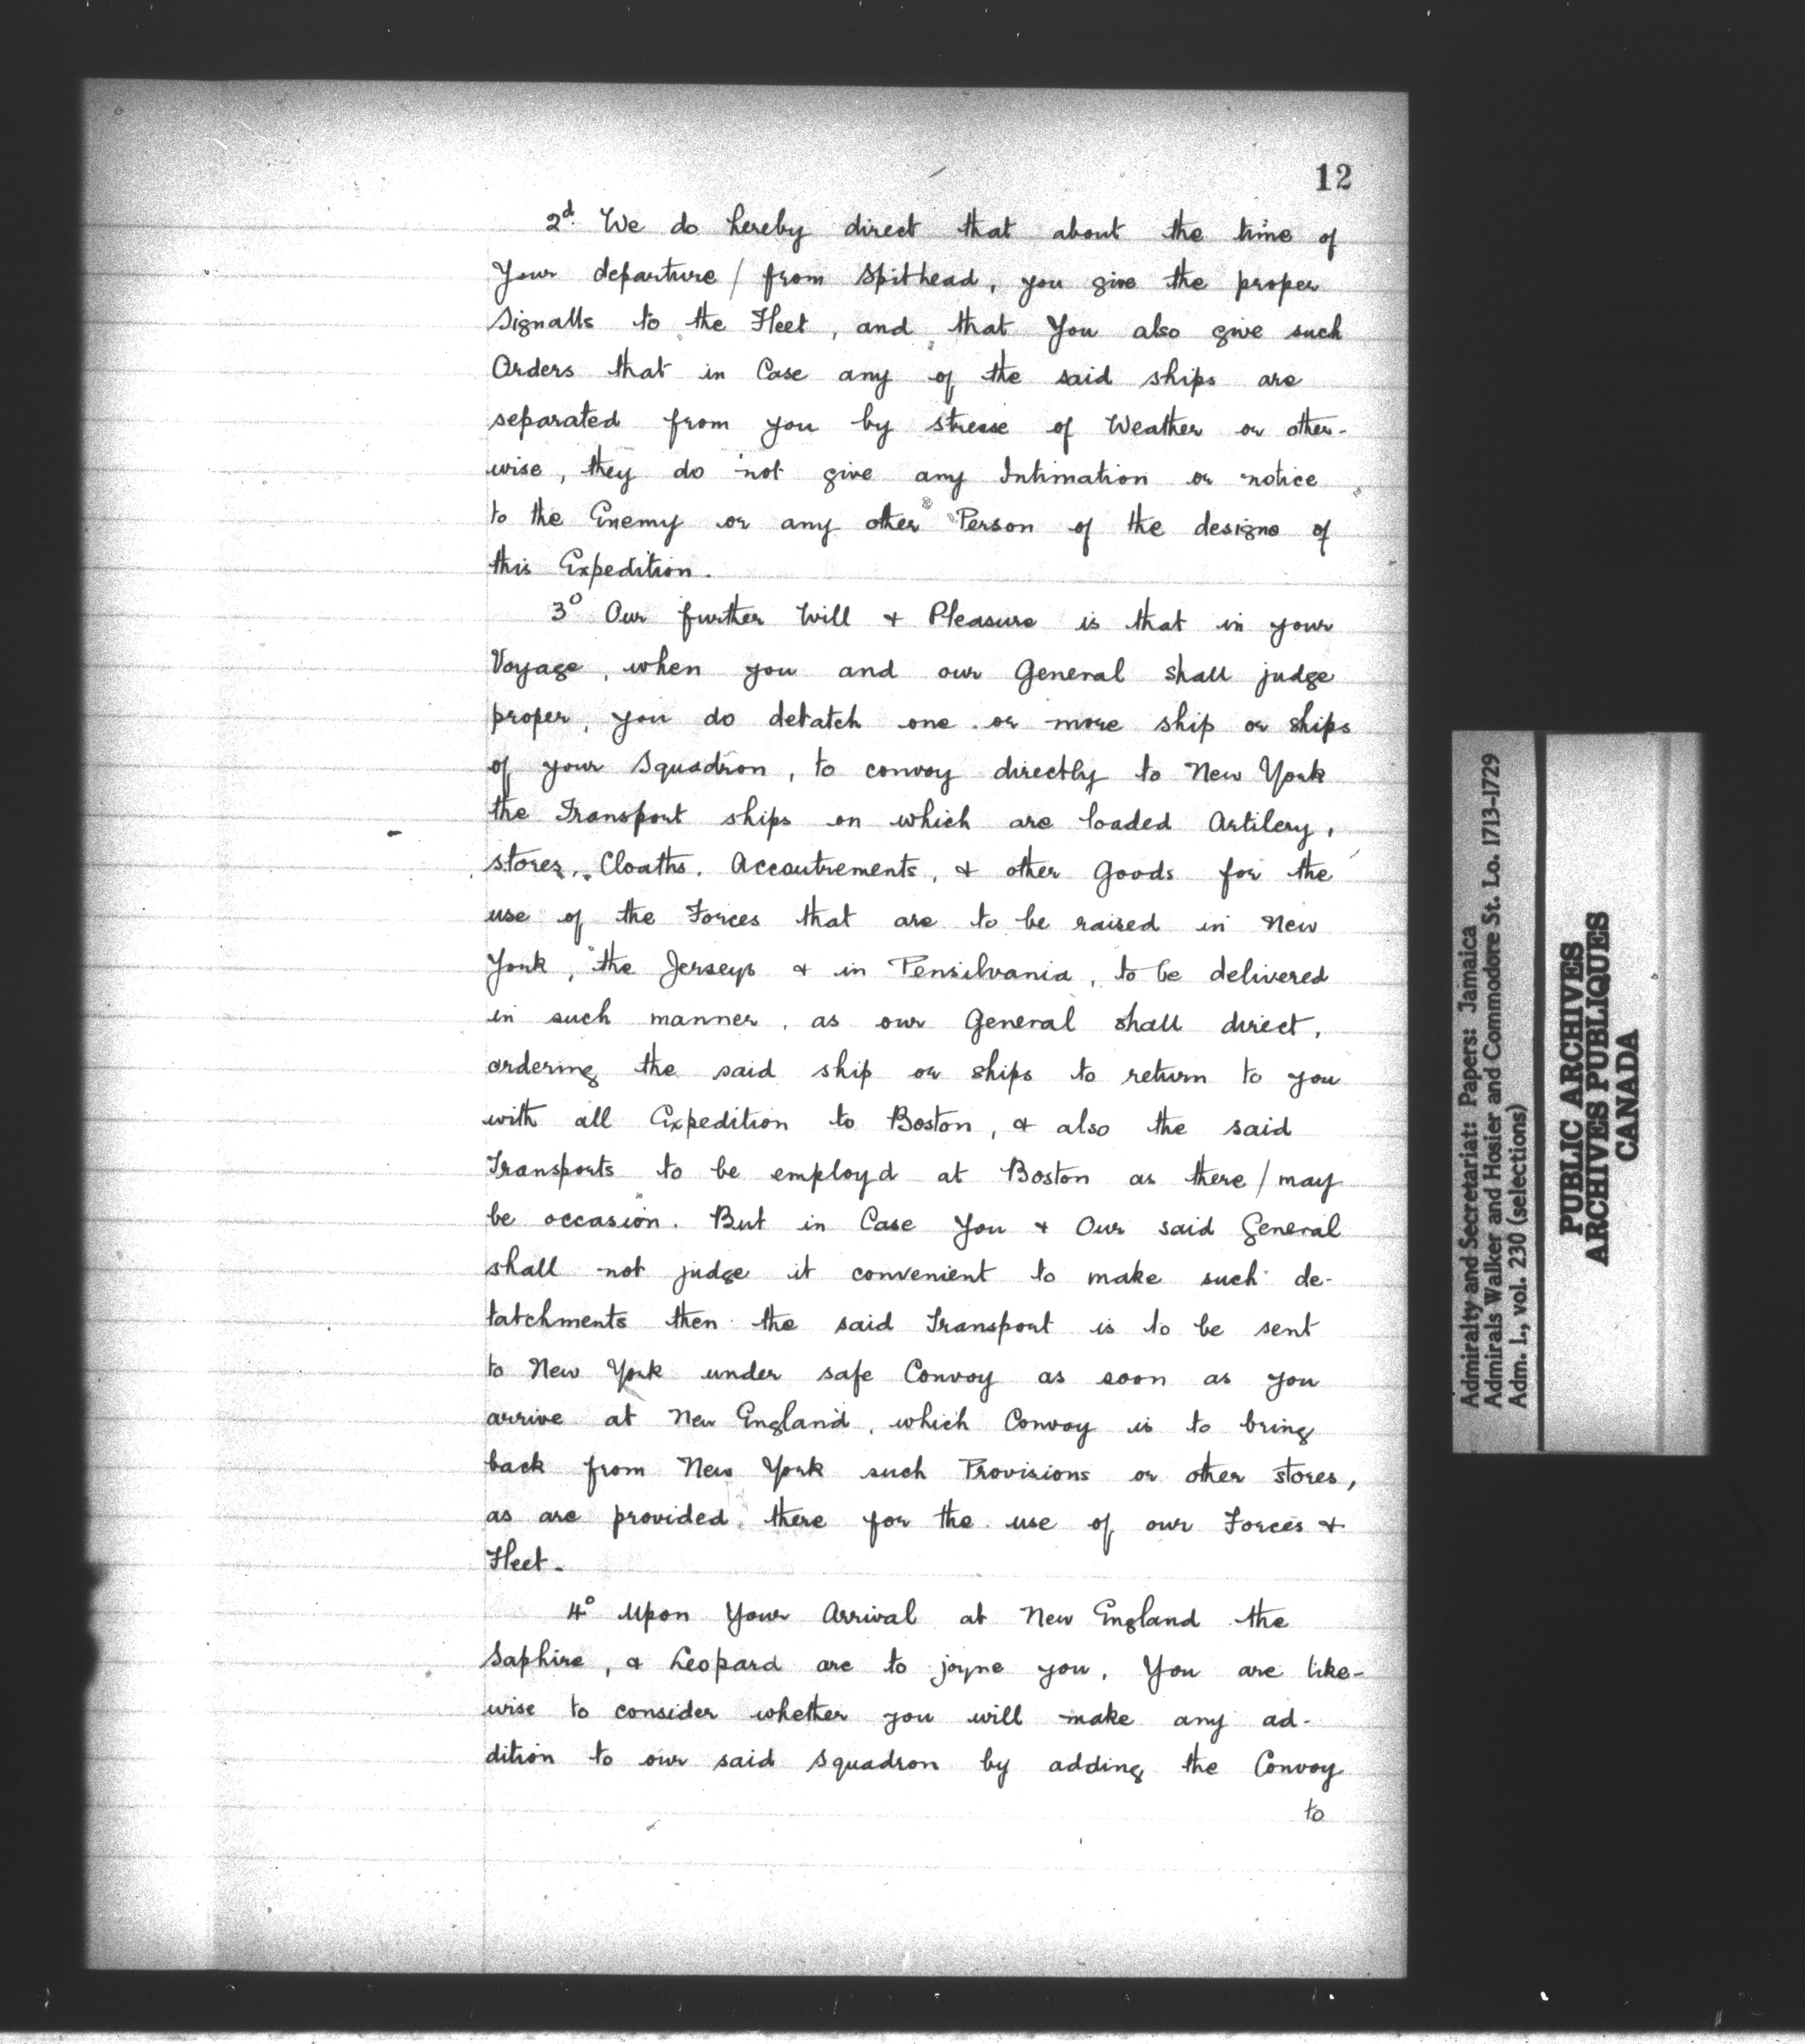 12
2d. We do hereby direct that about the time of
Your departure / from Spithead, you give the proper
Signalls to the Fleet, and that You also give such
Orders that in Case any of the said ships are
separated from you by stresse of Weather or other-
wise, they do not give any Intimation or notice
to the Enemy or any other Person of the designe of
this Expedition.
3o Our further Will & Pleasure is that in your
Voyage, when you and our General shall judge
proper, you do detatch one or more ship or ships
of your Squadron, to convoy directly to New York
the Transport ships on which are loaded Artilery,
stores, Cloaths, Accoutrements, & other Goods for the
use of the Forces that are to be raised in New
York, the Jerseys & in Pensilvania, to be delivered
in such manner, as our General shall direct,
ordering the said ship or ships to return to you
with all Expedition to Boston, & also the said
Transports to be employd at Boston as there / may
be occasion. But in Case You & Our said General
shall not judge it convenient to make such de-
tatchments then the said Transport is to be sent
to New York under safe Convoy as soon as you
arrive at New England, which Convoy is to bring
back from New York such Provisions or other stores,
as are provided there for the use of our Forces &
Fleet.
4o Upon Your Arrival at New England the
Saphire, & Leopard are to joyne you, You are like-
wise to consider whether you will make any ad-
dition to our said Squadron by adding the Convoy
to
Admiralty and Secretariat: Papers: Jamaica
Admirals Walker and Hosier and Commodore St. Lo. 1713-1729
Adm. 1., vol. 230 (selections)
PUBLIC ARCHIVES
ARCHIVES PUBLIQUES
CANADA